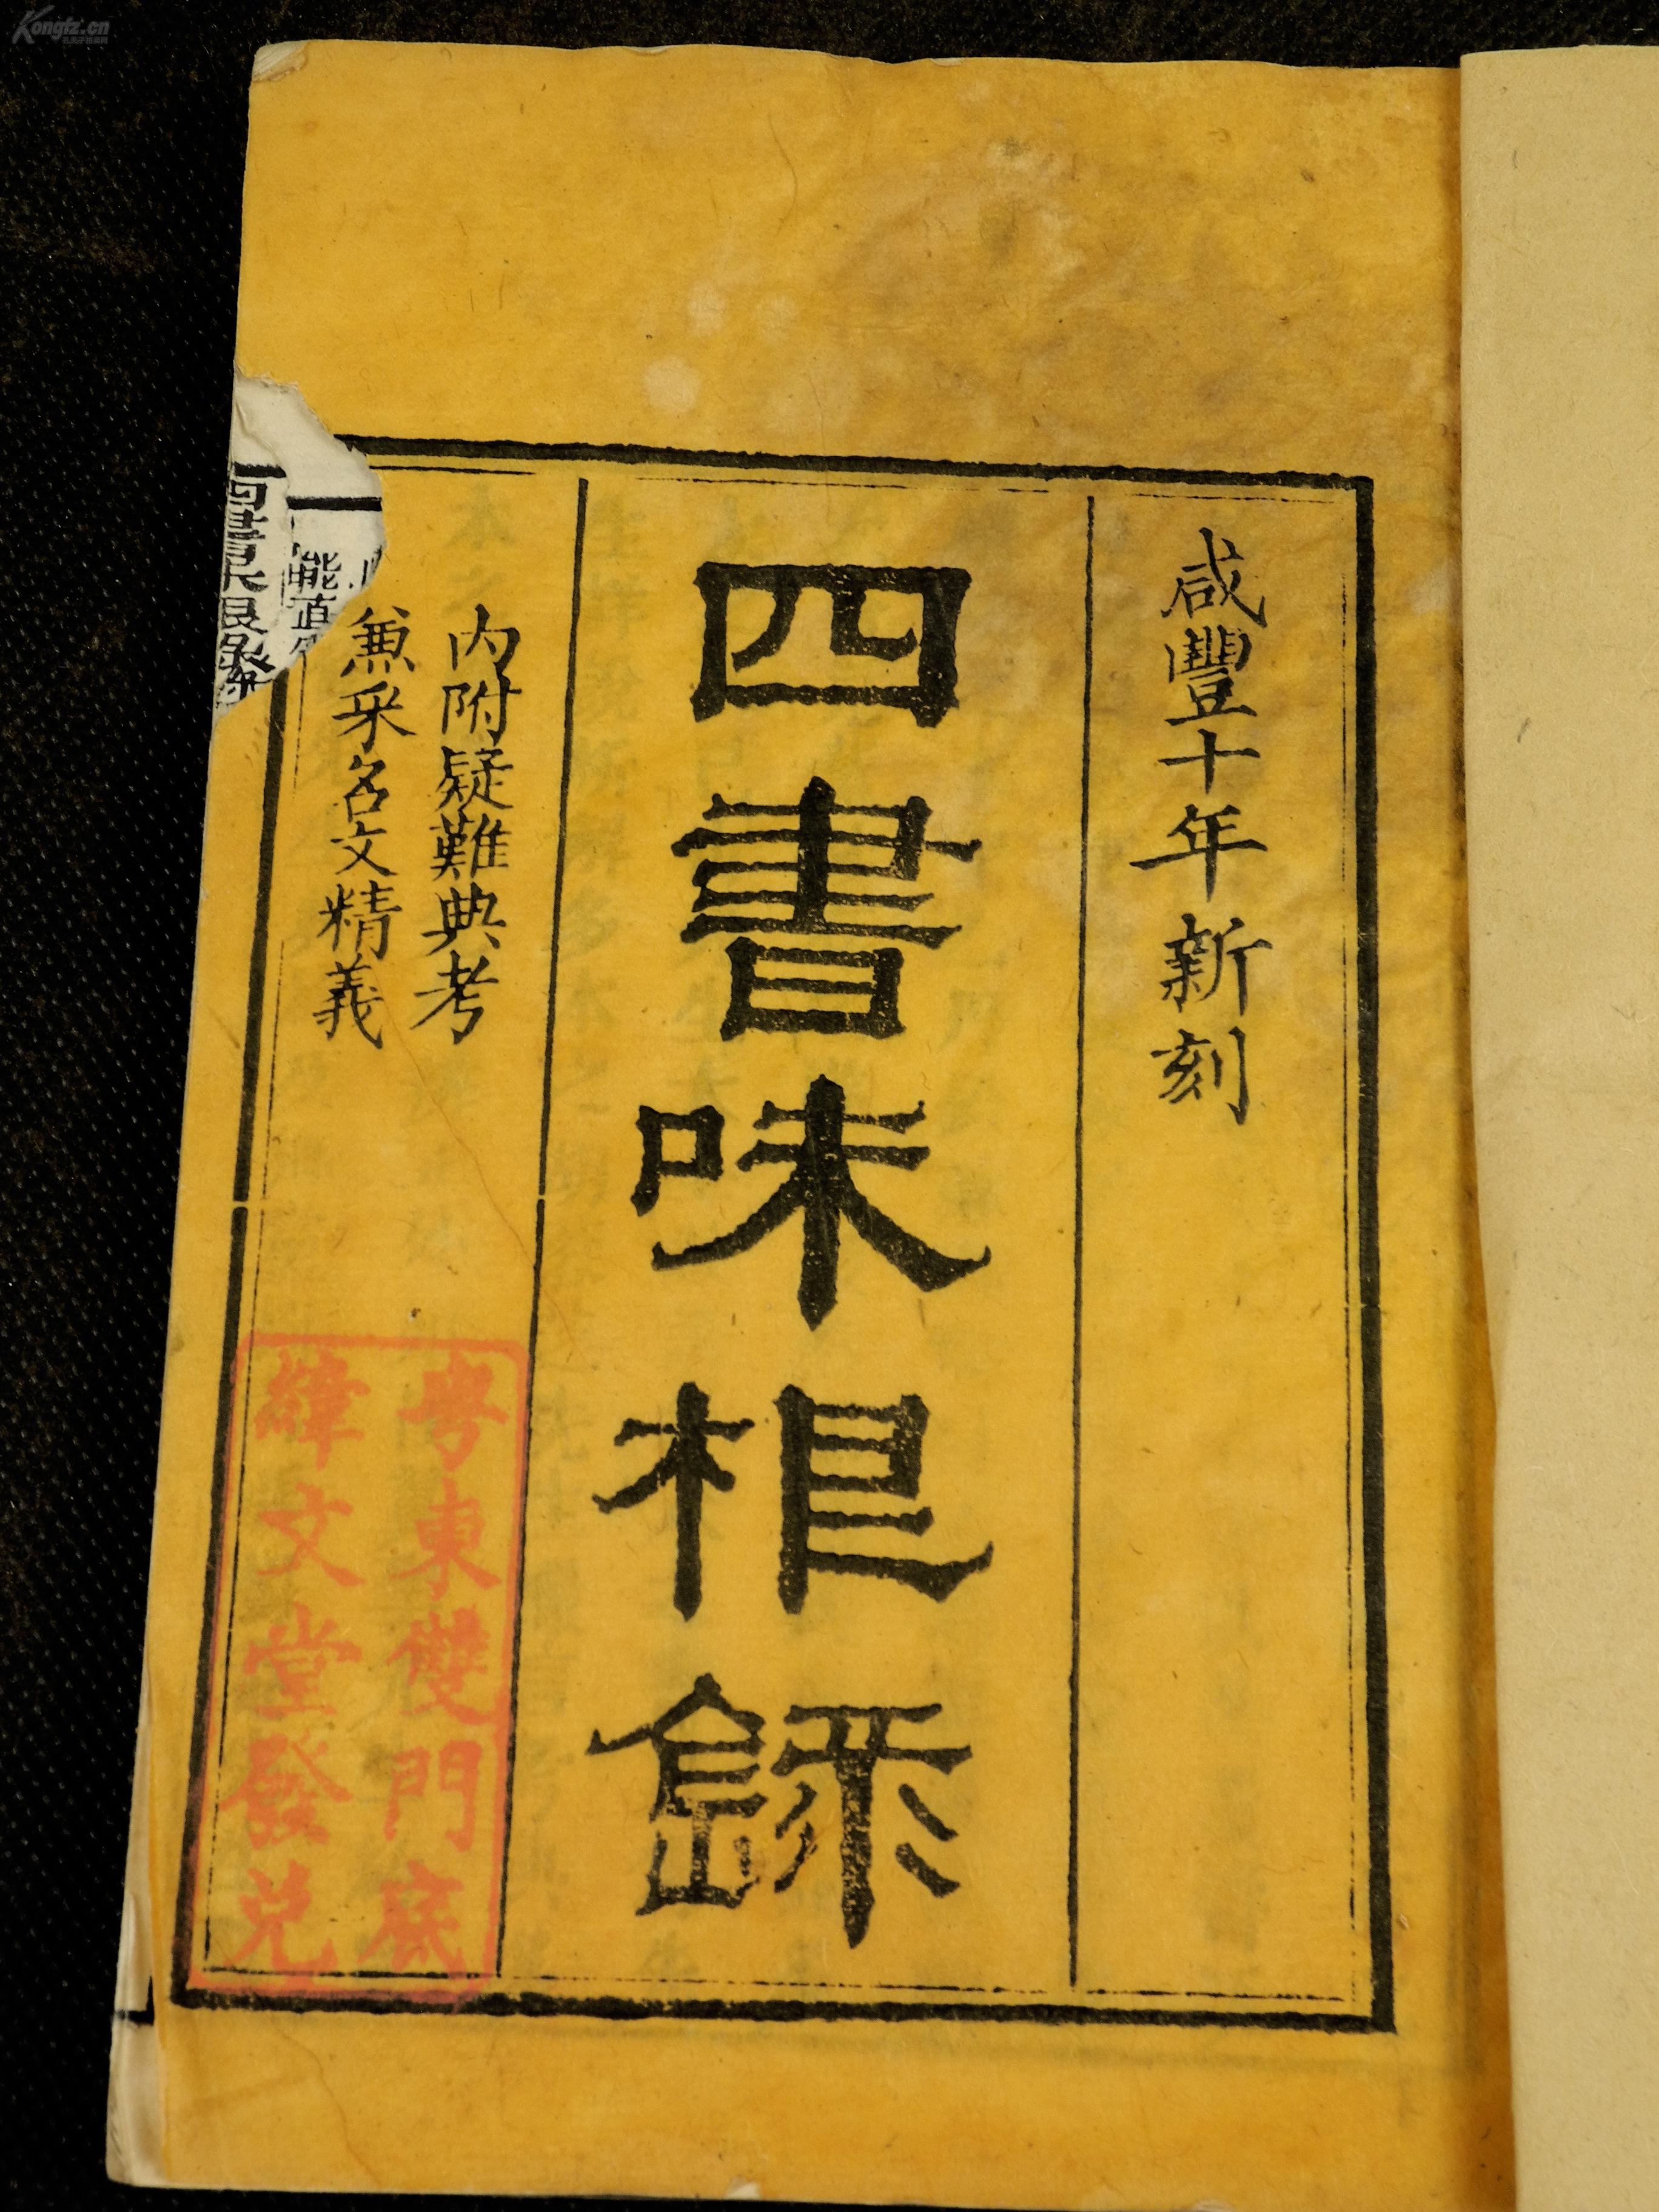 咸豐十年新刻
四書味根錄
內附疑難典考
兼采名文精義
粤東雙門底
緯文堂發兑
四書味根錄
Kongfz.cn